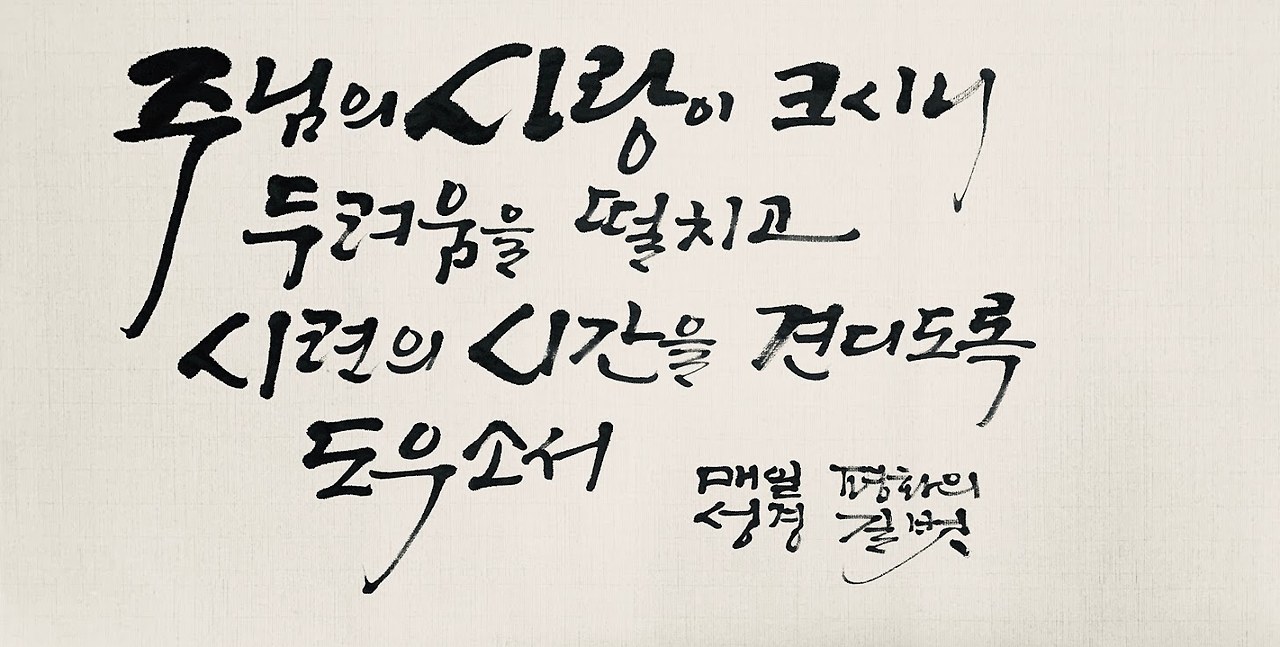 주님의 사랑이 크시니
두려움을 떨치고
시련의 시간을 견디도록
도우소서
매일 평화의
성경 길벗